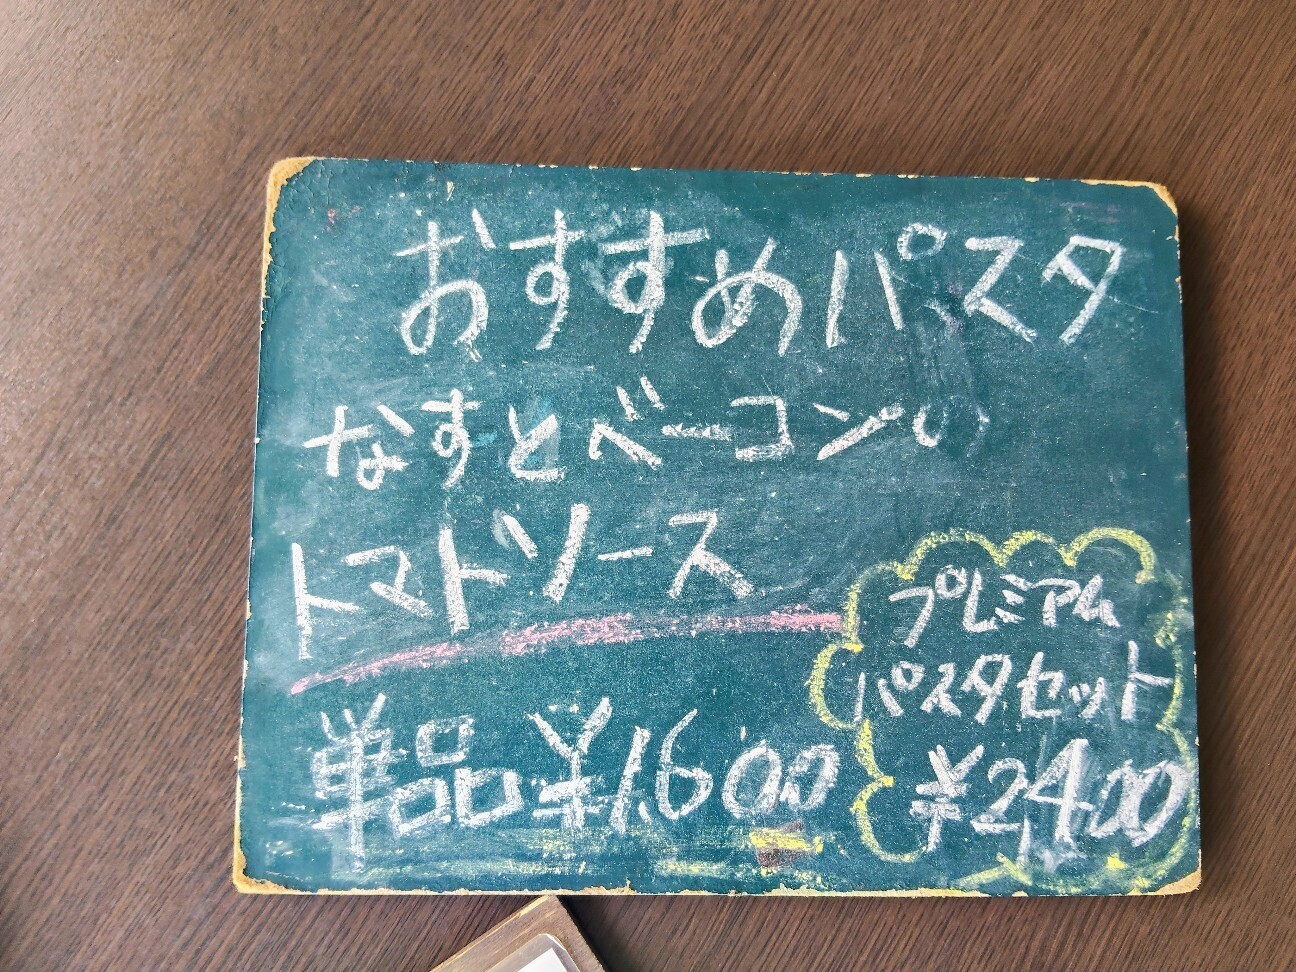 おすすめパスタ
なすとベーコンの
トマトソース
単品 ¥1,600
プレミアム
パスタセット
¥2,400